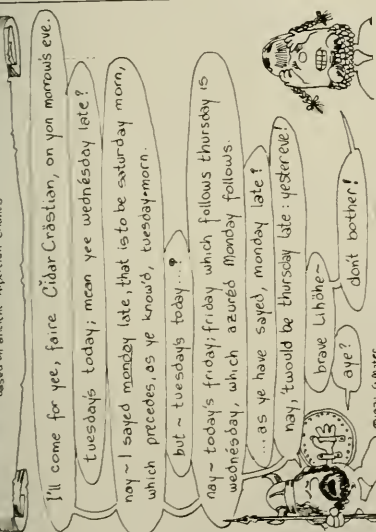 I'll come for yee, faire Cidar Crästian, on yon morrow's eve.
tuesday's today; mean yee wednésday late?
nay ~ I sayed monday late, that is to be saturday morn,
which precedes, as ye know'd, tuesday-morn.
but ~ tuesday's today...?
nay ~ today's friday; friday which follows thursday is
wednésday, which azured Monday follows.
... as ye have sayed, monday late?
nay, 'twould be thursday late: yestereve!
brave Lihöne~
aye?
don't bother!